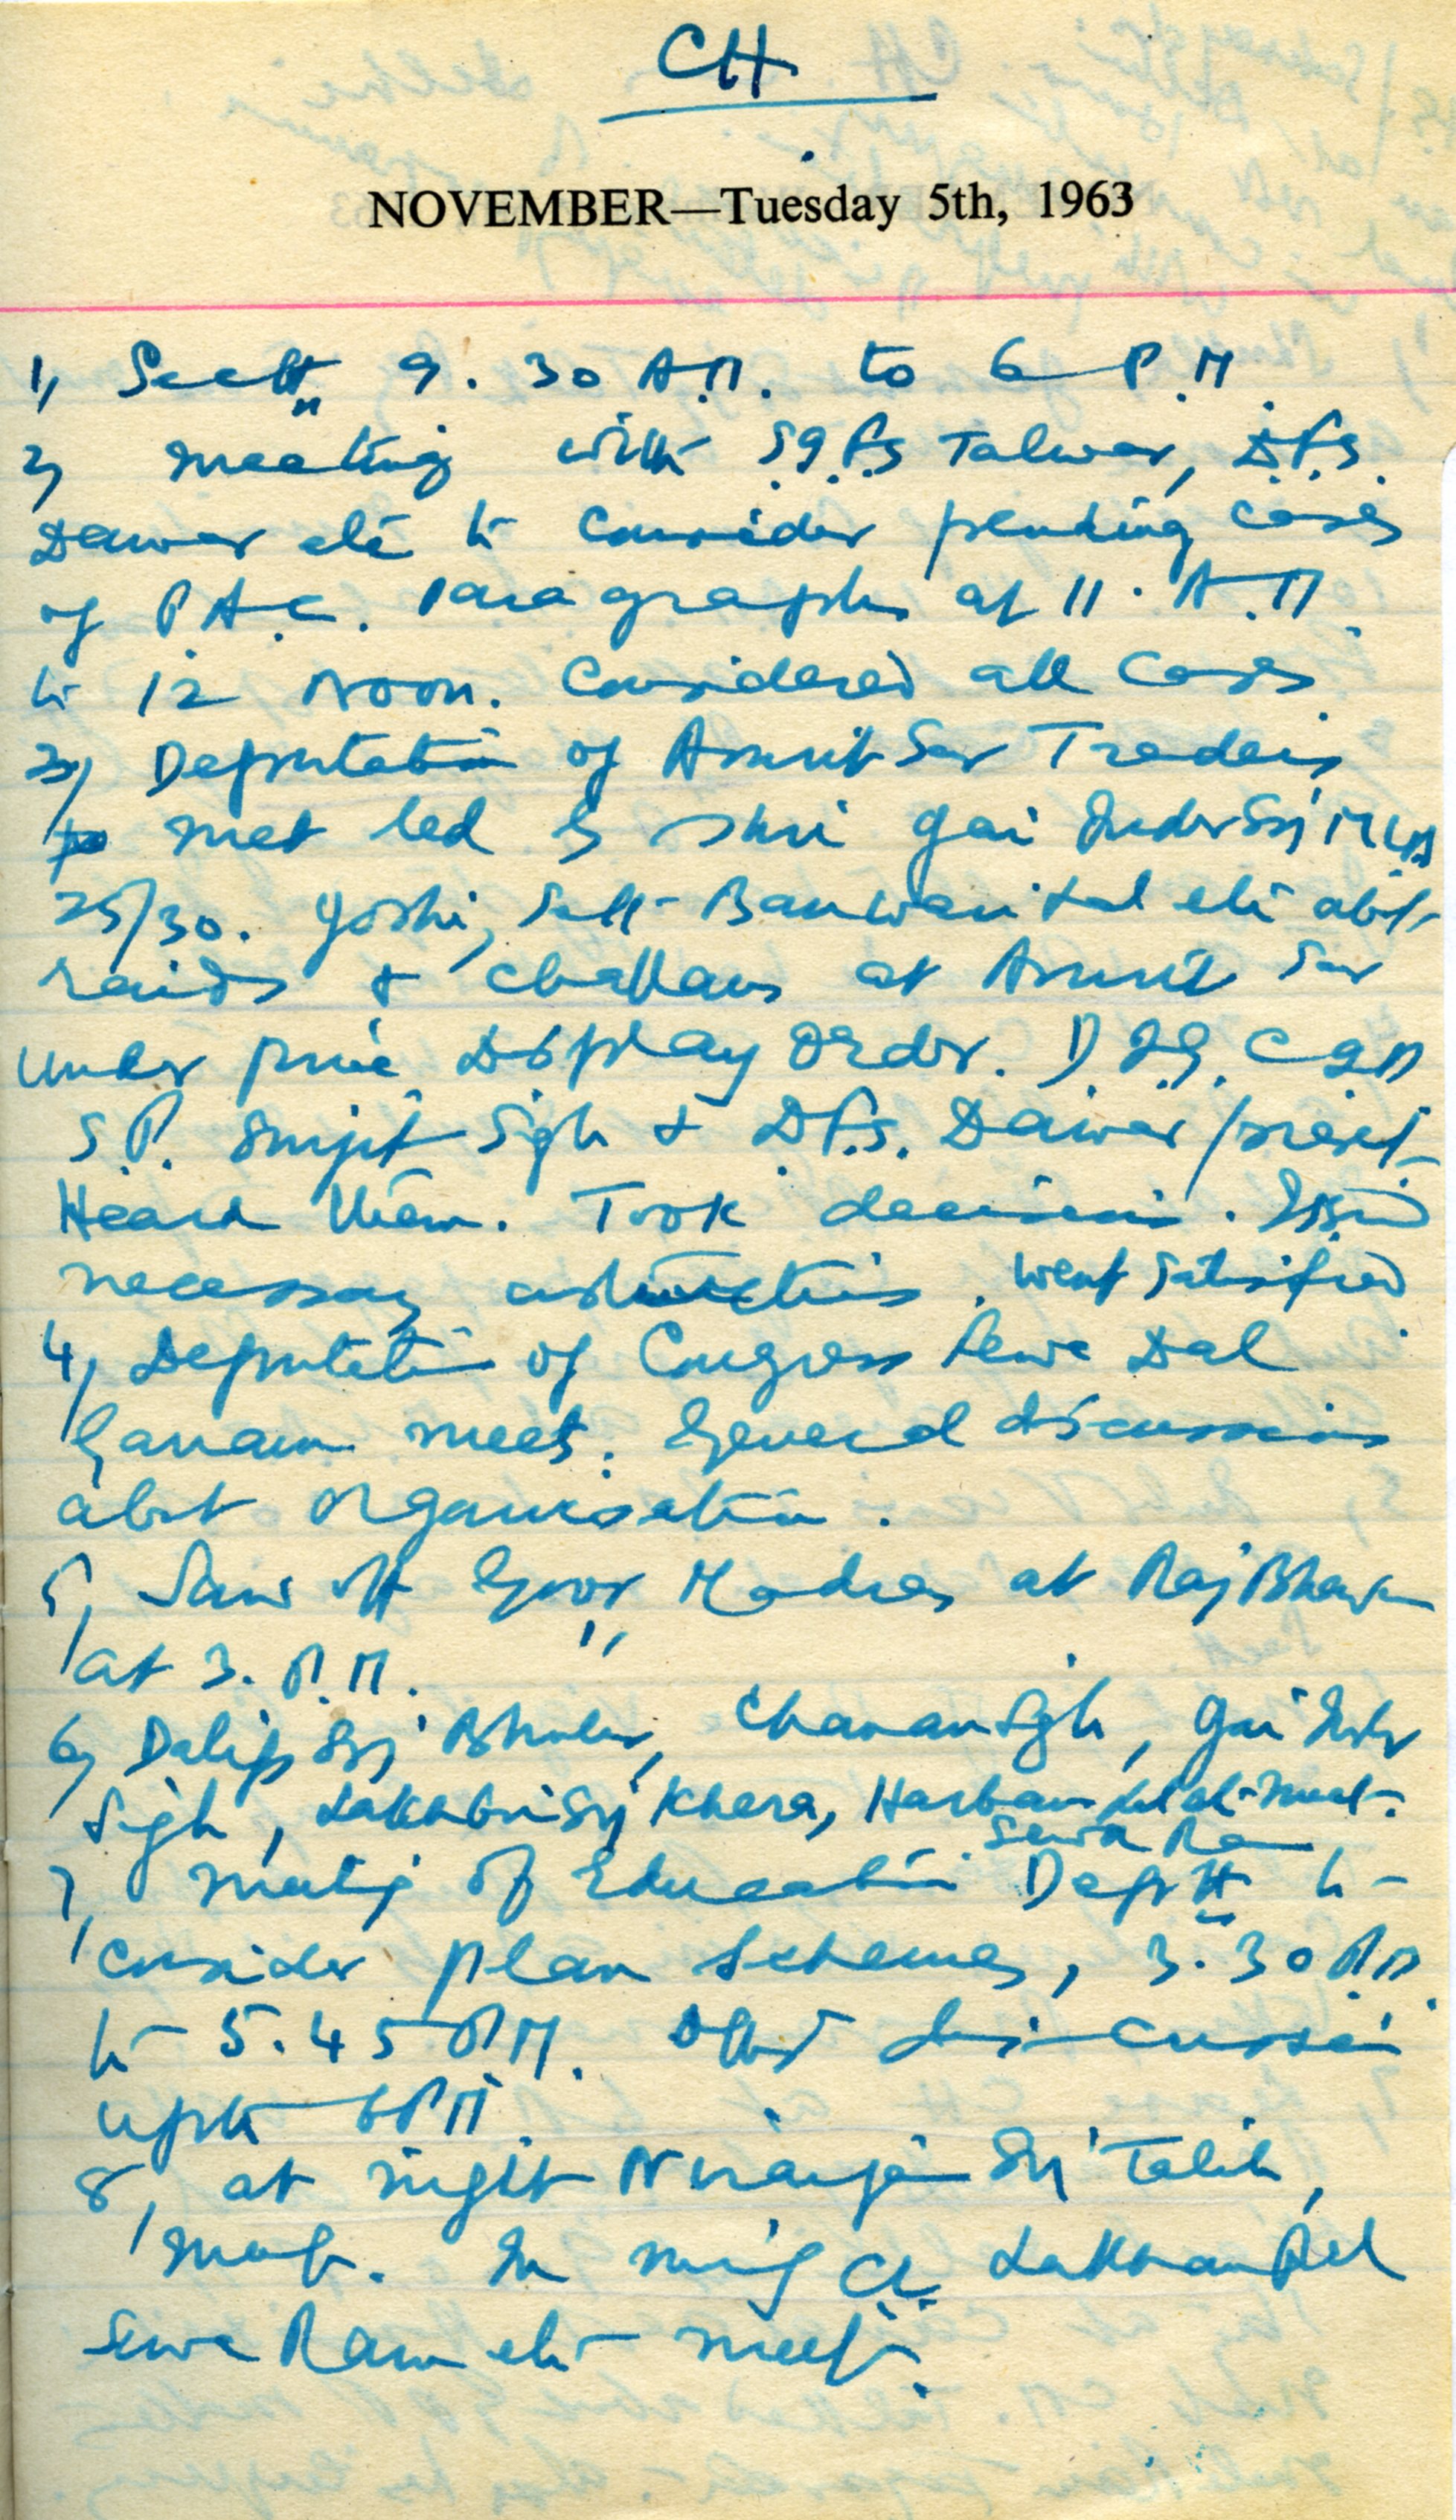 CH
NOVEMBER—Tuesday 5th, 1963
1, Sectt 9.30 A.M. to 6 P.M.
2, meeting with Talwar, D.F.S.
Dewar etc to consider pending cases
of P.A.C. Paragraphs at 11. A.M.
to 12 Noon. Considered all cases.
3, Deputation of Amrit Sar Traders
met led by Shri Jai Inder Sgh MLA
25/30. Joshi, Seth Banwari Lal etc abt
raids & challans at Amrit Sar
under price Display Order. D.I.G. C.I.D
S.P. Surjit Sigh & D.F.S. Dewar present
Heard them. Took decision. Issued
necessary instructions. Went satisfied.
4, Deputation of Congress Sewa Dal
meet. General discussions
abt organisation.
5, Saw off Govr Madras at Raj Bhawan
at 3. P.M.
6, Dalip Sgh, Charan Sgh, Jai Inder
Sigh, Lakhbir Sgh Khera, Harbans Lal etc meet.
Sewa Ram
7, Meetig of Education Deptt to
consider plan schemes, 3.30 P.M.
to 5.45 P.M. discussion
upto 6 P.M.
8, at night Niranjan Sgh Talib,
meet. In mng Ch. Lakhan Pal
Sewa Ram etc meet.